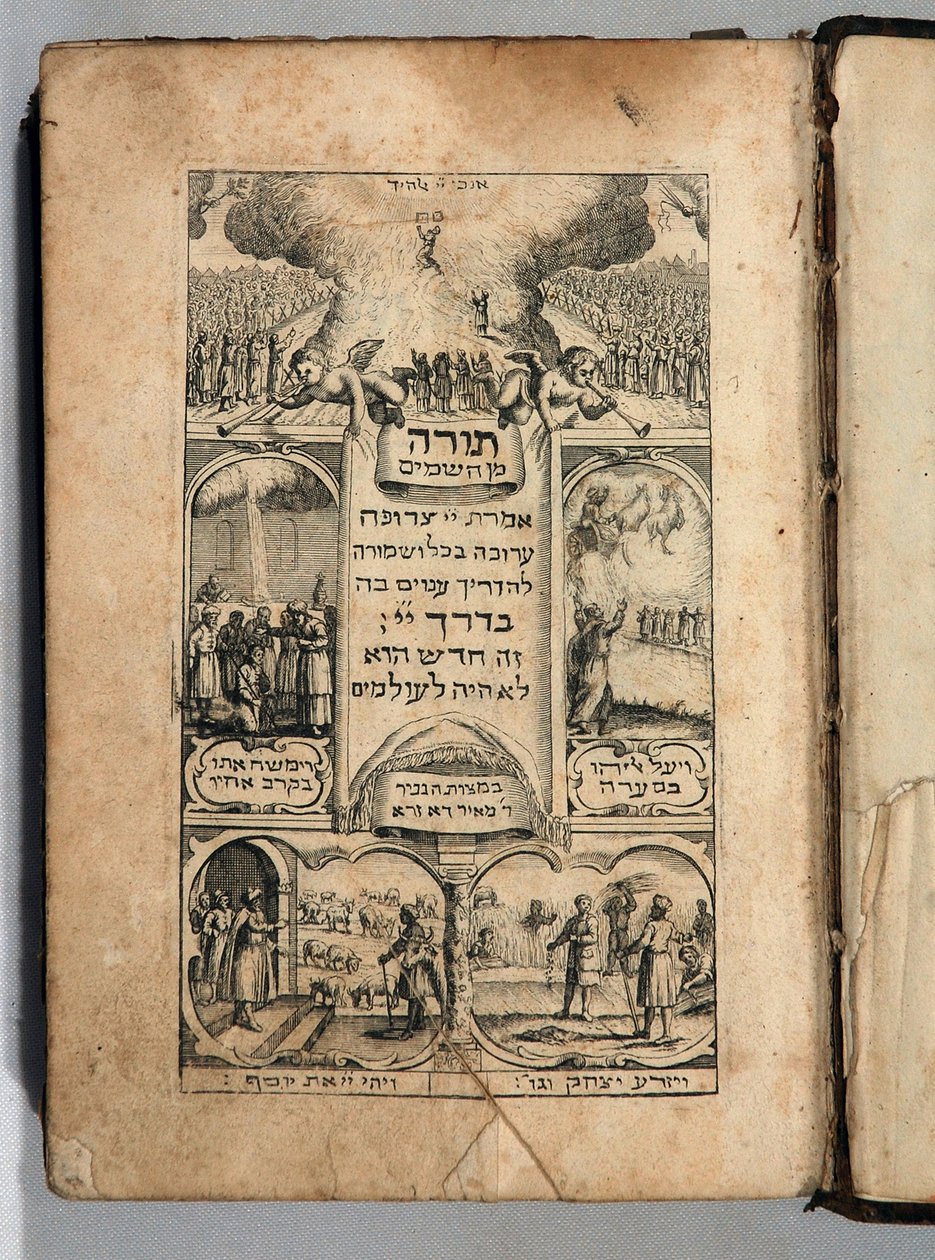 אנכי יי אלהיך
תורה
מן השמים
אמרת יי צרופה
ערוכה בכל ושמורה
להדריך ענוים בה
בדרך ייי ;
זה חדש הוא
לא היה לעולמים
ויעל אליהו
בסערה
וימשח אתו
בקרב אחיו
במצות הגביר
ר' מאיר דא זרא
ויזרע יצחק וגו' :
ויהי יי את יוסף :